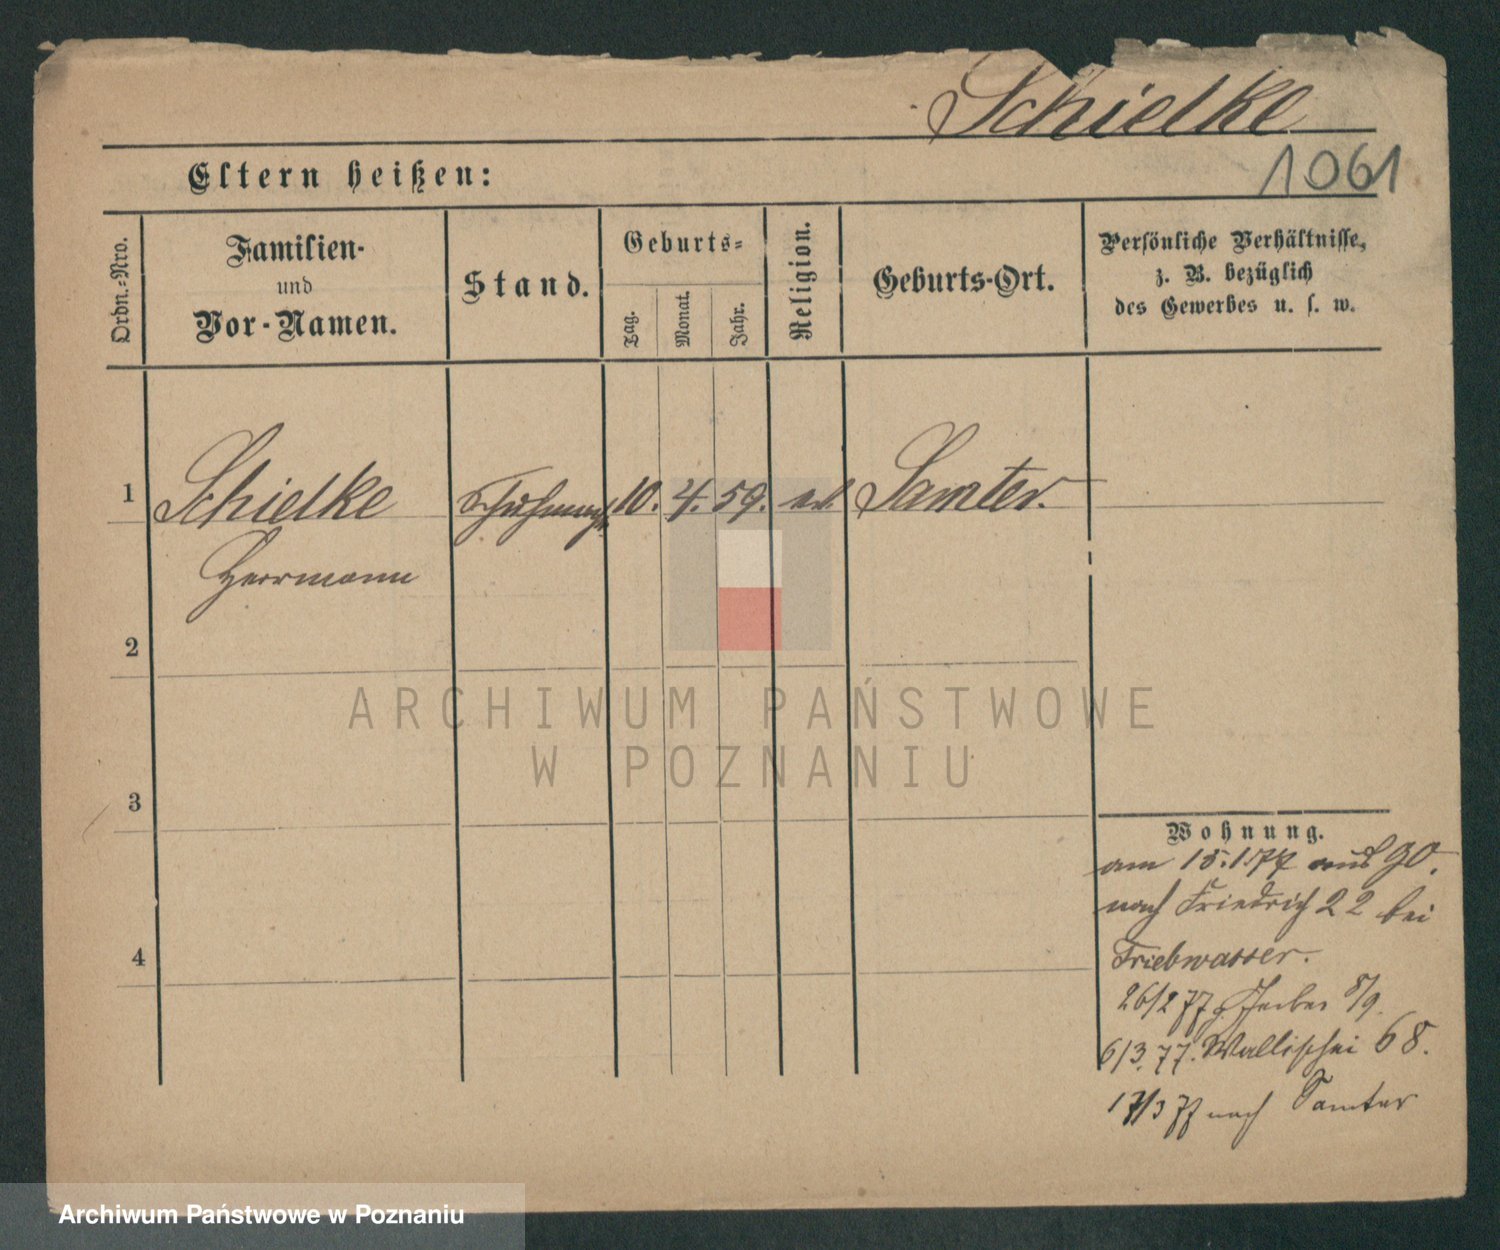 Schielke
1061
Eltern heißen:
Ordn.-Nro.
Familien-
und
Vor-Namen.
Stand.
Geburts-
Tag.
Monat.
Jahr.
Religion.
Geburts-Ort.
Persönliche Verhältnisse,
z. B. bezüglich
des Gewerbes u. s. w.
1 Schielke 10. 4. 59. Samter.
Herrmann
2
3
4
Wohnung.
am 15.1.77 aus 90.
nach Friedrich 22 bei
Friebwasser.
26/2 77 8/9.
6/3. 77. Wallischei 68.
17/3 77 nach Samter
ARCHIWUM PAŃSTWOWE
W POZNANIU
Archiwum Państwowe w Poznaniu